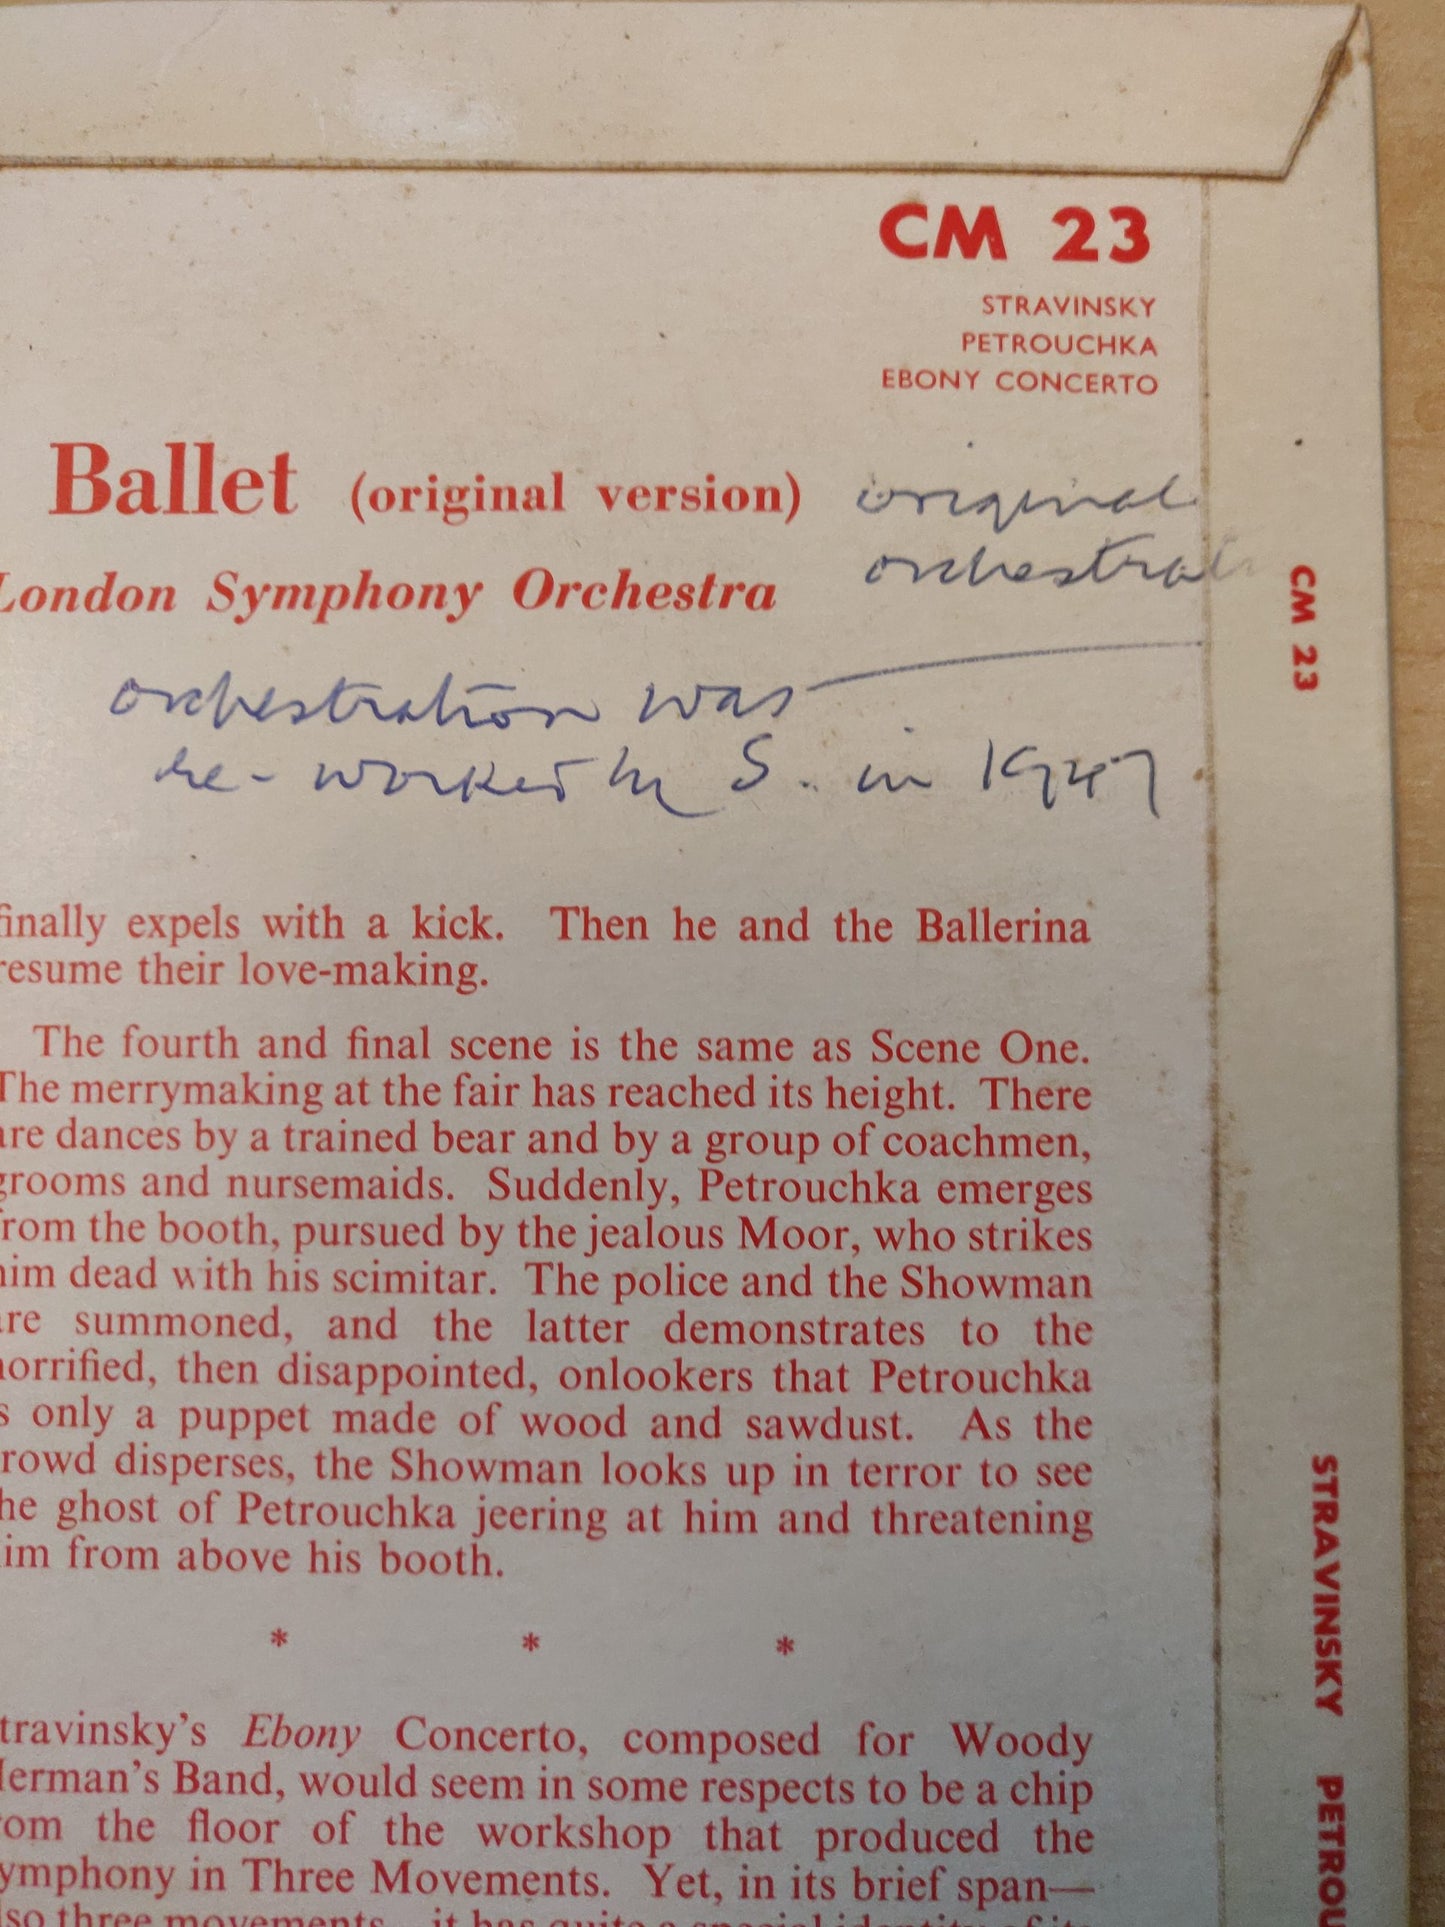 CM 23
STRAVINSKY
PETROUCHKA
EBONY CONCERTO
Ballet (original version) original
orchestral
London Symphony Orchestra
orchestration was
re-worked by S. in 1947
finally expels with a kick. Then he and the Ballerina
resume their love-making.
The fourth and final scene is the same as Scene One.
The merrymaking at the fair has reached its height. There
are dances by a trained bear and by a group of coachmen,
grooms and nursemaids. Suddenly, Petrouchka emerges
from the booth, pursued by the jealous Moor, who strikes
him dead with his scimitar. The police and the Showman
are summoned, and the latter demonstrates to the
horrified, then disappointed, onlookers that Petrouchka
is only a puppet made of wood and sawdust. As the
crowd disperses, the Showman looks up in terror to see
the ghost of Petrouchka jeering at him and threatening
him from above his booth.
* * *
Stravinsky's Ebony Concerto, composed for Woody
Herman's Band, would seem in some respects to be a chip
from the floor of the workshop that produced the
Symphony in Three Movements. Yet, in its brief span—
also three movements
CM 23
STRAVINSKY PETROU